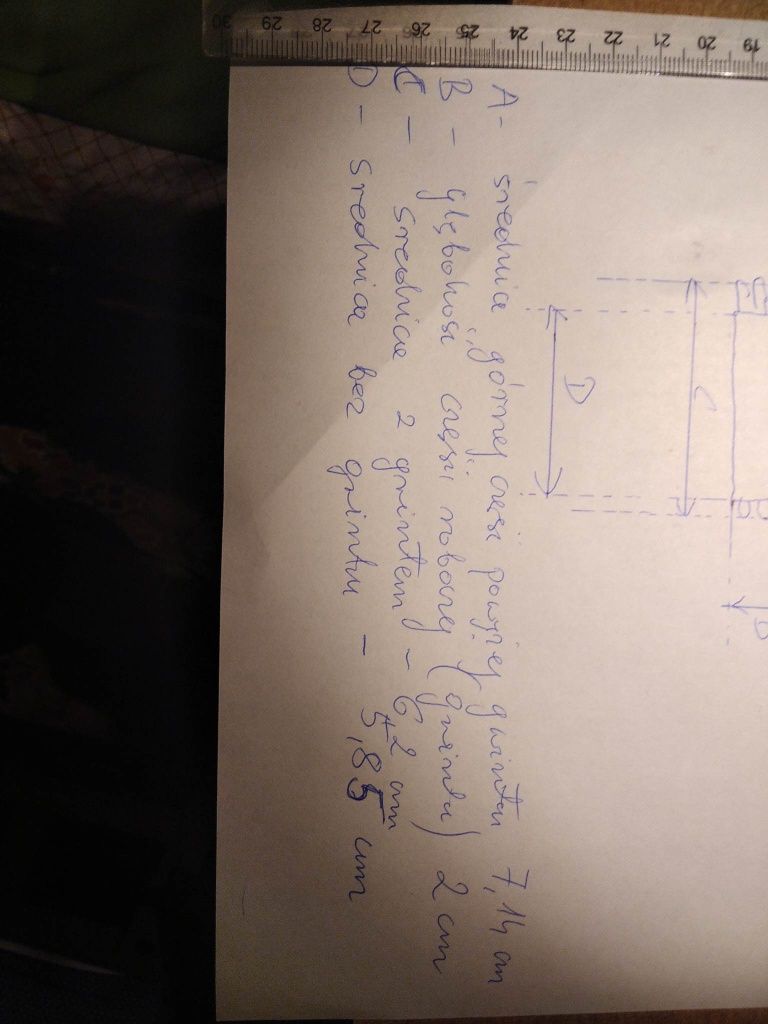 30 29 28 27 26 25 24 23 22 21 20 19
C
D
B
A - średnica górnej części powyżej gwintu 7,14 cm
B - głębokość części roboczej (gwintu) 2 cm
C - średnica z gwintem - 6,2 cm
D - średnica bez gwintu - 5,85 cm